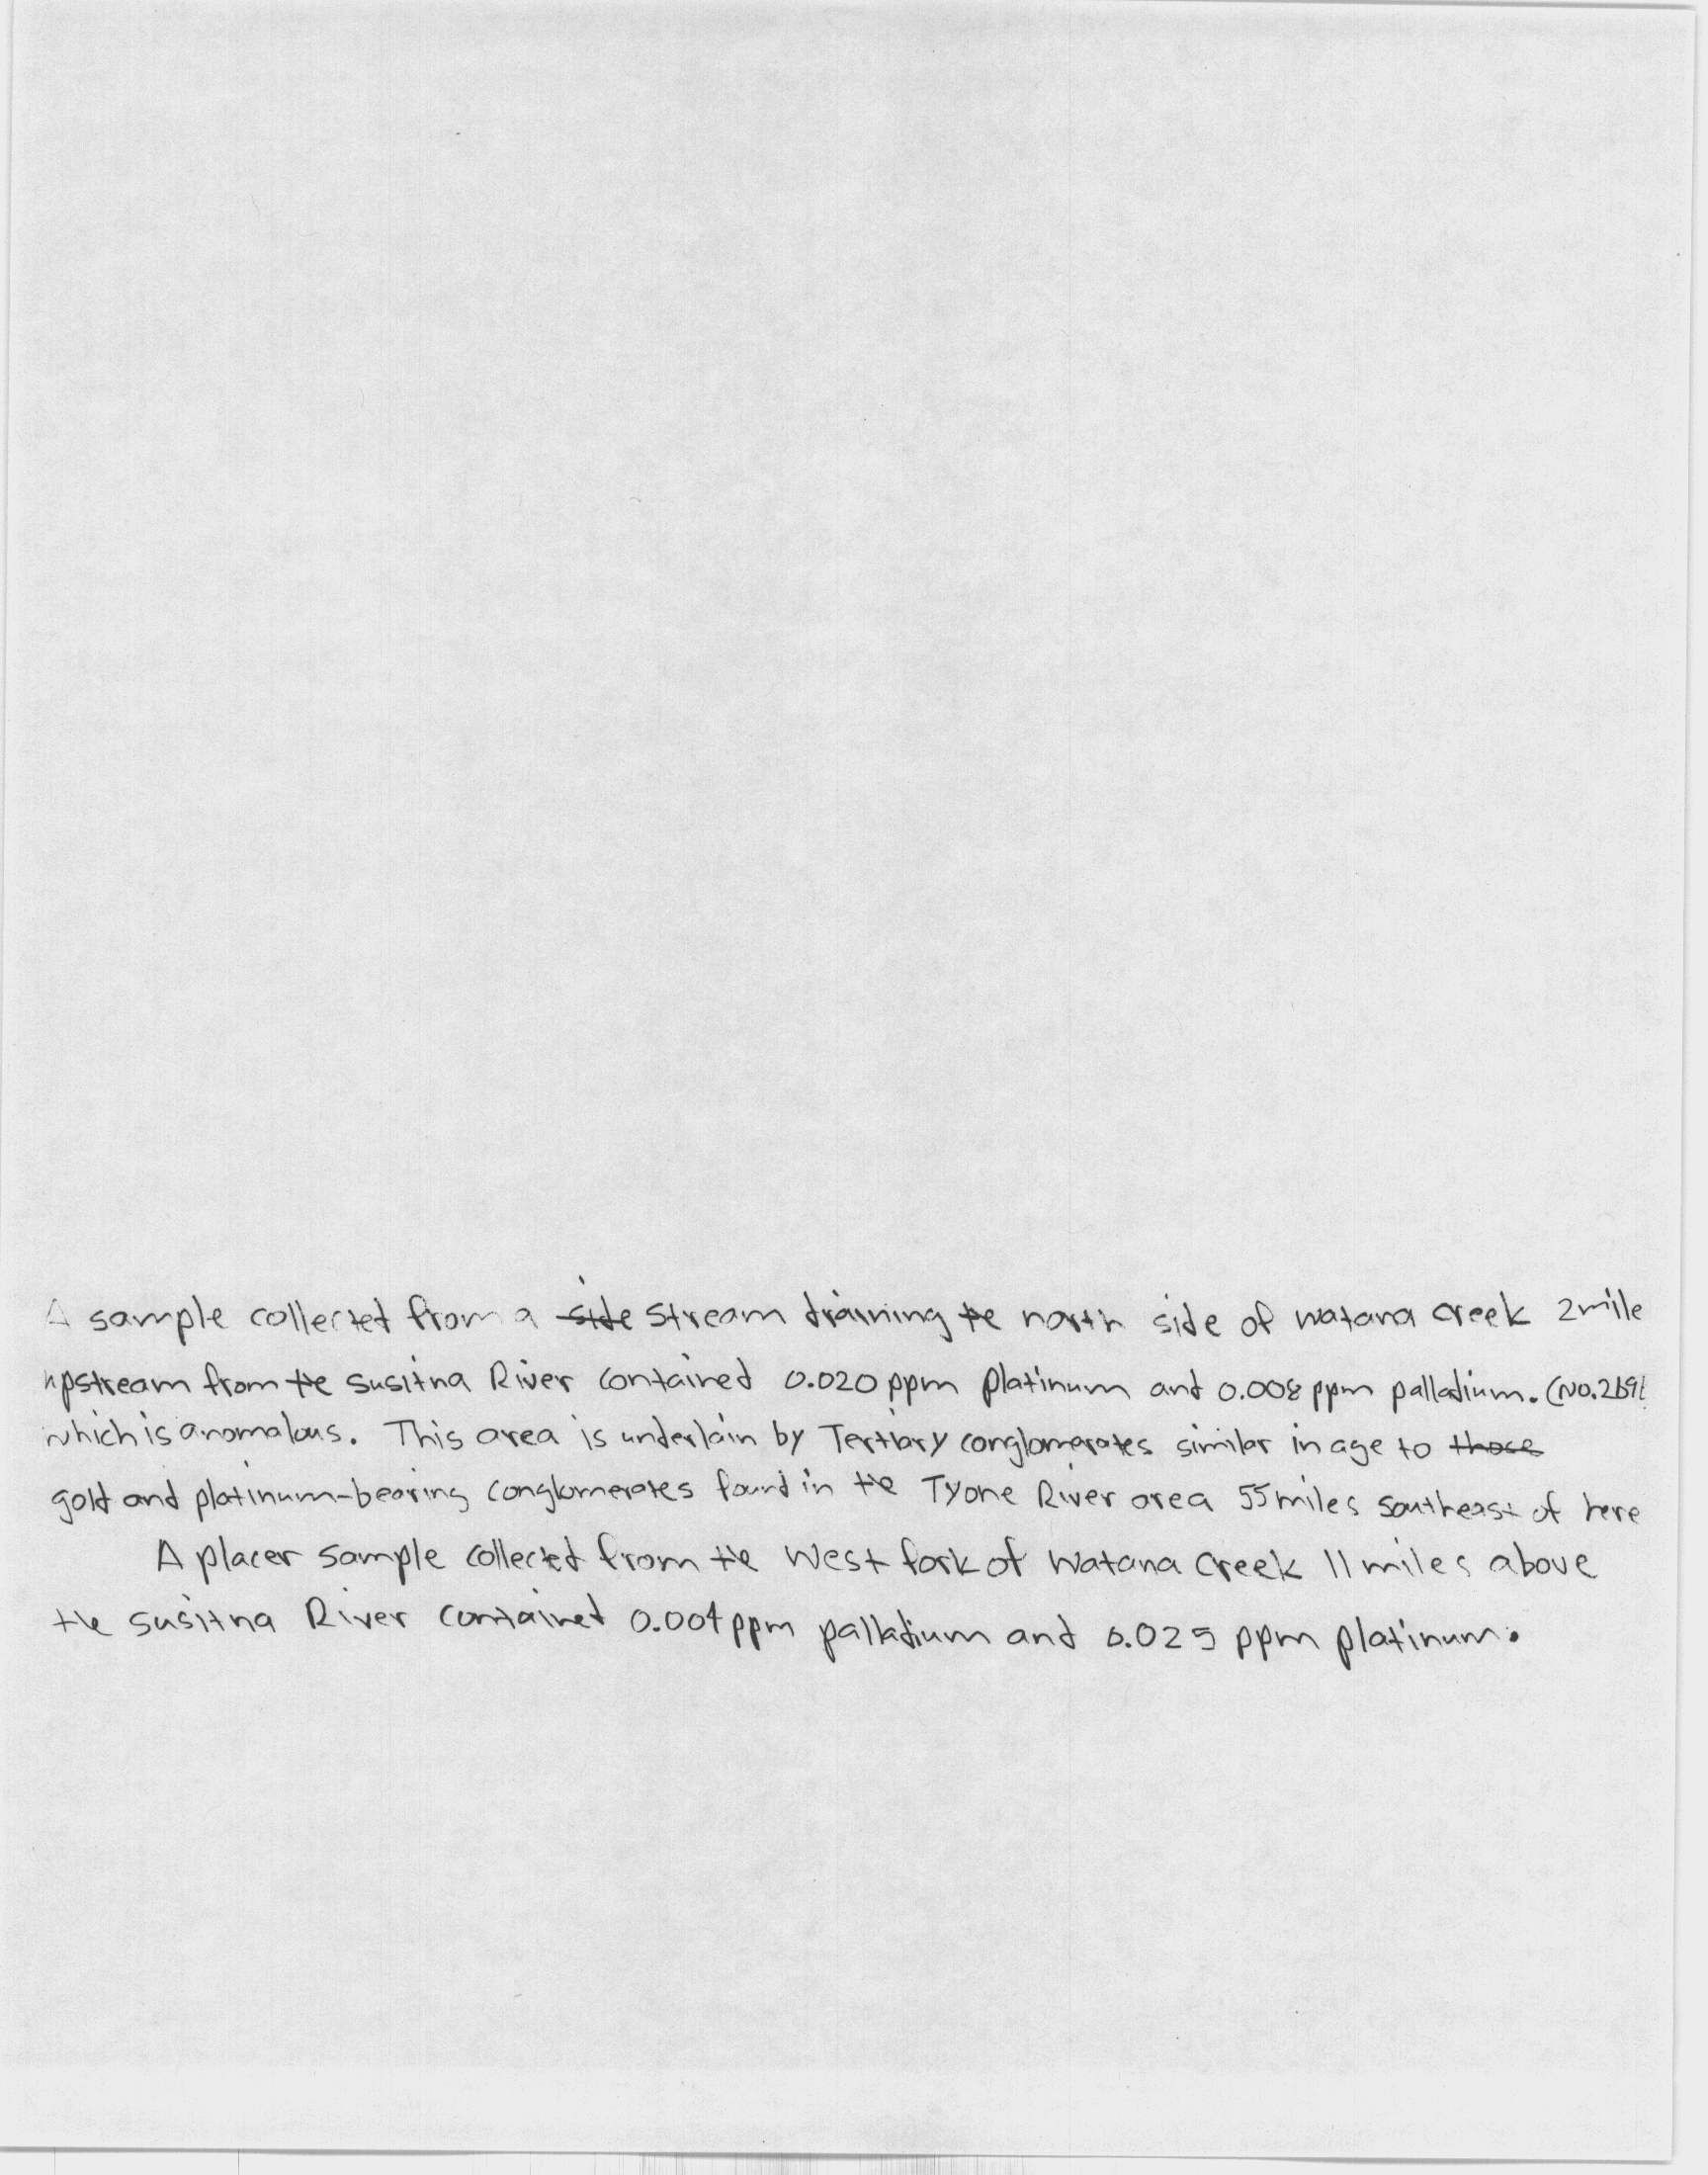 A sample collected from a side stream draining the north side of Watana Creek 2mile
upstream from the Susitna River contained 0.020 ppm platinum and 0.008 ppm palladium. (No.
which is anomalous. This area is underlain by Tertiary conglomerates similar in age to those
gold and platinum-bearing conglomerates found in the Tyone River area 55 miles southeast of here
A placer sample collected from the West fork of Watana Creek 11 miles above
the Susitna River contained 0.004 ppm palladium and 0.025 ppm platinum.